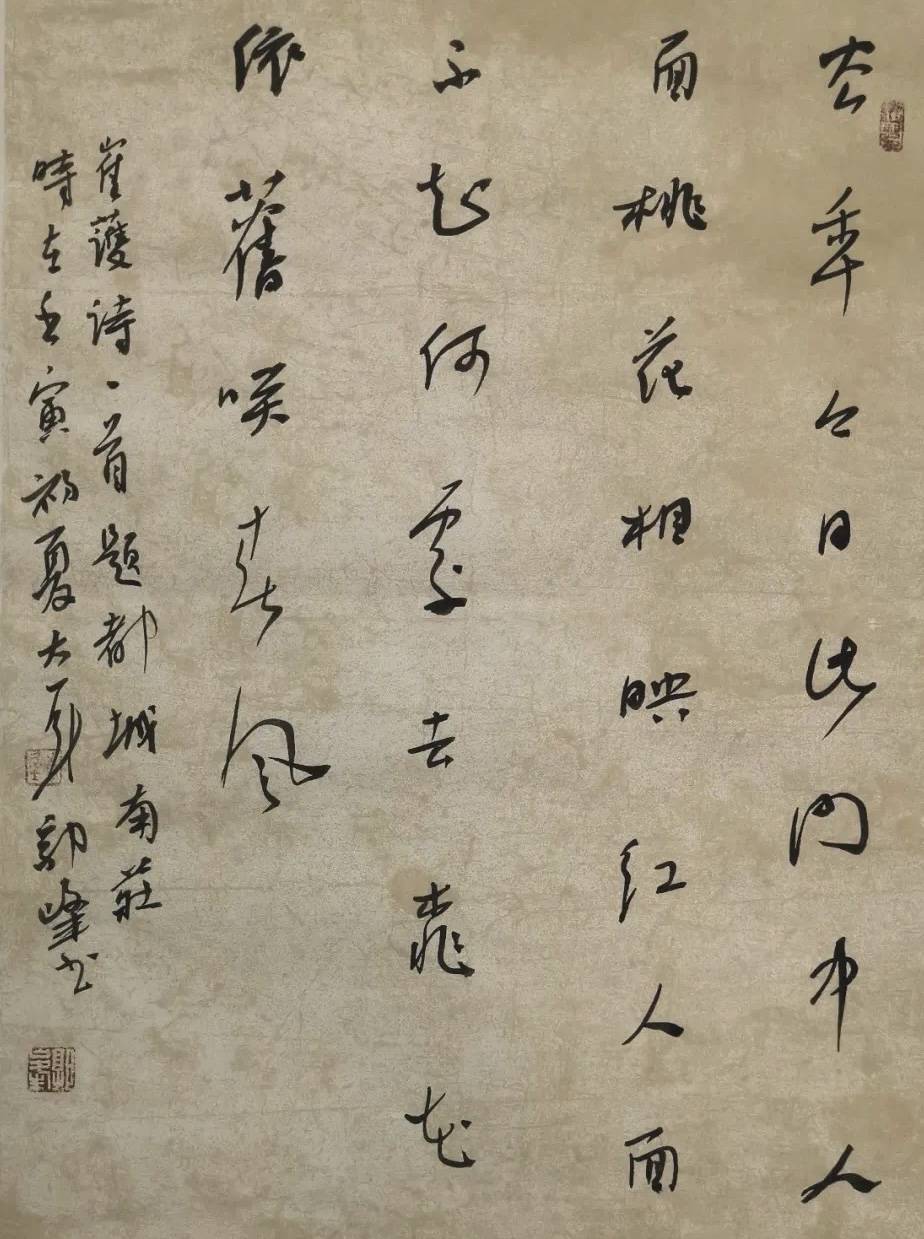 去年今日此門中人
面桃花相映红人面
不知何處去桃花
依舊咲春风
崔護诗一首題都城南莊
時在壬寅初夏大夏郭峰书